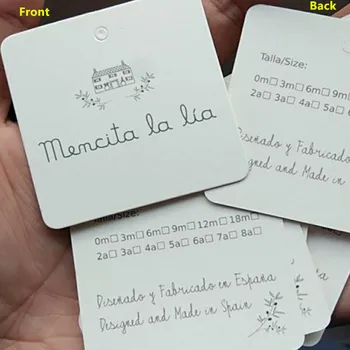 Front
Back
Mencita la lía
Talla/Size:
0m☐ 3m☐ 6m☐ 9m
2a☐ 3a☐ 4a☐ 5a☐ 6
Diseñado y Fabricado
Designed and Made in
Talla/Size:
0m☐ 3m☐ 6m☐ 9m☐ 12m☐ 18m☐
2a☐ 3a☐ 4a☐ 5a☐ 6a☐ 7a☐ 8a☐
Diseñado y Fabricado en España
Designed and Made in Spain